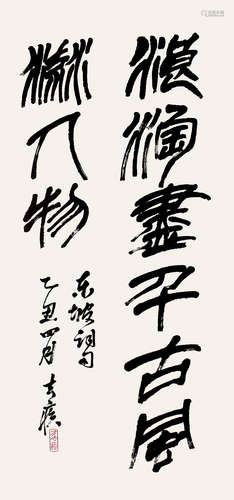 浪淘盡千古風
流人物
東坡詞句
乙丑四月 去疾